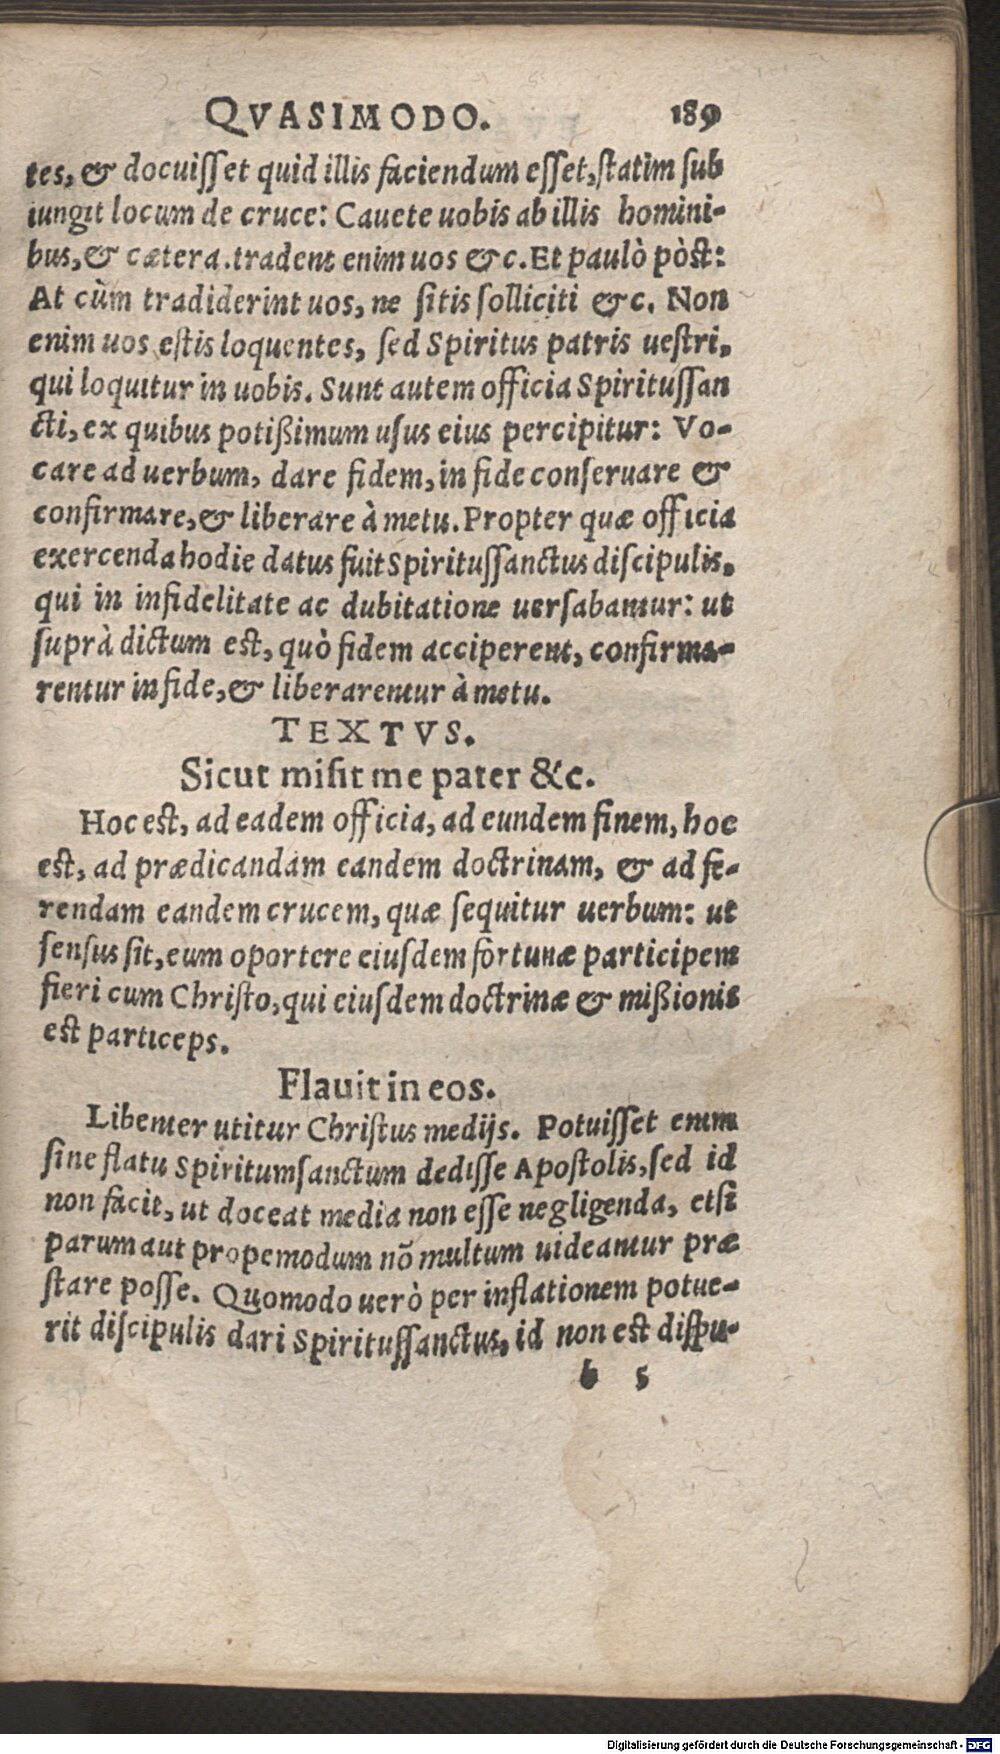 QVASIMODO. 189
tes, & docuiſſet quid illis faciendum eſſet, ſtatim ſub
iungit locum de cruce: Cauete uobis ab illis homini-
bus, & cætera. tradent enim uos &c. Et paulò pòſt:
At cùm tradiderint uos, ne ſitis ſolliciti &c. Non
enim uos eſtis loquentes, ſed Spiritus patris ueſtri,
qui loquitur in uobis. Sunt autem officia Spirituſſan
cti, ex quibus potißimum uſus eius percipitur: Vo-
care ad uerbum, dare fidem, in fide conſeruare &
confirmare, & liberare à metu. Propter quæ officia
exercenda hodie datus fuit Spirituſſanctus diſcipulis,
qui in infidelitate ac dubitatione uerſabantur: ut
ſuprà dictum eſt, quò fidem acciperent, confirma-
rentur in fide, & liberarentur à metu.
TEXTVS.
Sicut miſit me pater &c.
Hoc eſt, ad eadem officia, ad eundem finem, hoc
eſt, ad prædicandam eandem doctrinam, & ad fe-
rendam eandem crucem, quæ ſequitur uerbum: ut
ſenſus ſit, eum oportere eiuſdem fortunæ participem
fieri cum Chriſto, qui eiuſdem doctrinæ & mißionis
eſt particeps.
Flauit in eos.
Libenter utitur Chriſtus medijs. Potuiſſet enim
ſine flatu Spiritumſanctum dediſſe Apoſtolis, ſed id
non facit, ut doceat media non eſſe negligenda, etſi
parum aut propemodum nõ multum uideantur præ
ſtare poſſe. Quomodo uerò per inflationem potue-
rit diſcipulis dari Spirituſſanctus, id non eſt diſpu-
b 5
Digitalisierung gefördert durch die Deutsche Forschungsgemeinschaft - DFG